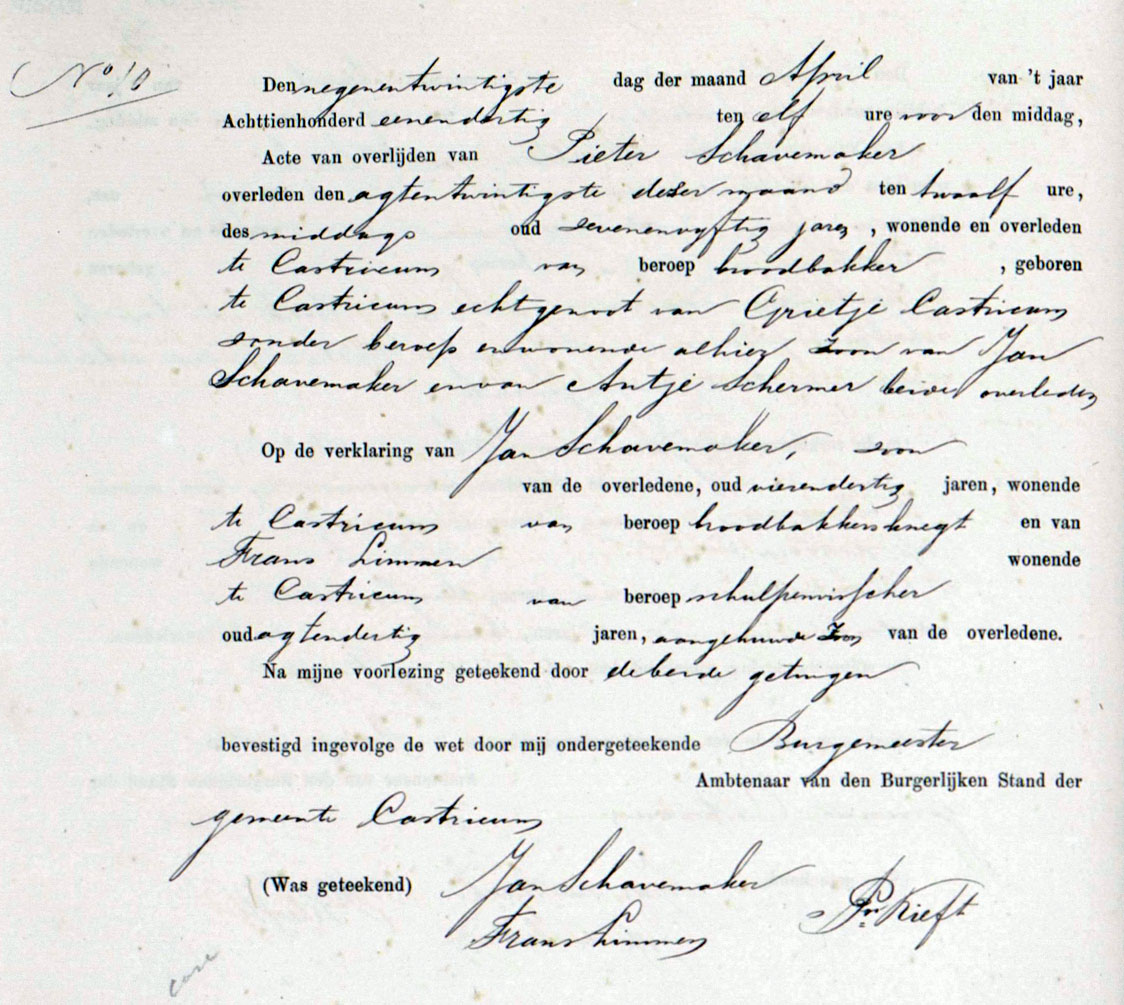 No 10
Den negenentwintigste dag der maand April van 't jaar
Achttienhonderd eenendertig ten elf ure voor den middag,
Acte van overlijden van Pieter Schavemaker
overleden den agtentwintigste deser maand ten twaalf ure,
des middags oud sevenenvyftig jaren, wonende en overleden
te Castricum van beroep broodbakker, geboren
te Castricum echtgenoot van Grietje Castricum
sonder beroep en wonende alhier zoon van Jan
Schavemaker en van Antje Schermer beide overleden
Op de verklaring van Jan Schavemaker, zoon
van de overledene, oud vierendertig jaren, wonende
te Castricum van beroep broodbakkersknegt en van
Frans Limmen wonende
te Castricum van beroep schulpenvisscher
oud agtendertig jaren, aangehuwde Zoon van de overledene.
Na mijne voorlezing geteekend door de beide getuigen
bevestigd ingevolge de wet door mij ondergeteekende Burgemeester
Ambtenaar van den Burgerlijken Stand der
gemeente Castricum
(Was geteekend) Jan Schavemaker
Pr. Kieft
Frans Limmen